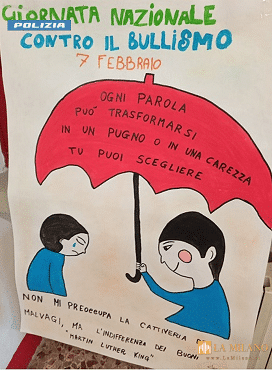 GIORNATA NAZIONALE
POLIZIA
CONTRO IL BULLISMO
7 FEBBRAIO
OGNI PAROLA
PUO' TRASFORMARSI
IN UN PUGNO O IN UNA CAREZZA
TU PUOI SCEGLIERE
NON MI PREOCCUPA LA CATTIVERIA
MALVAGI, MA L'INDIFFERENZA DEI BUONI
"MARTIN LUTHER KING"
LA MILANO